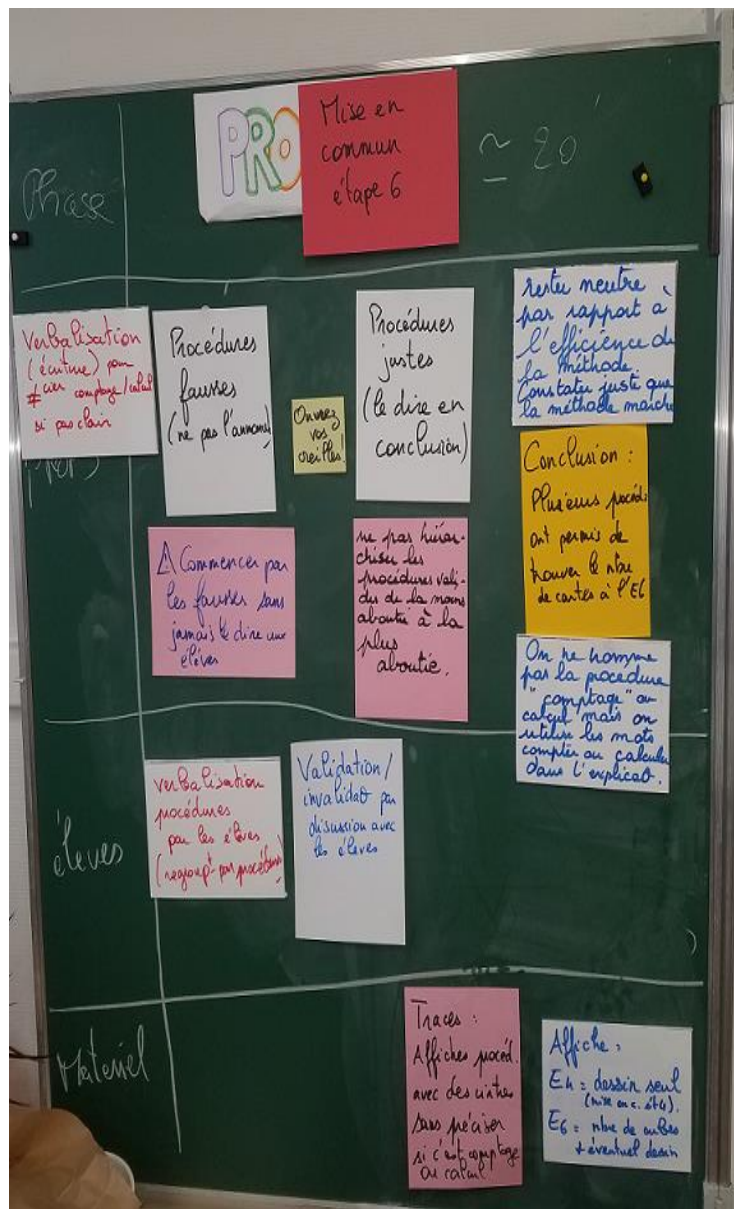 PRO
Mise en
commun
étape 6
≃ 20'
Phase
Verbalisation
(écriture) pour
≠cier comptage/calcul
si pas clair
Procédures
fausses
(ne pas l'annoncer)
Ouvrez
vos
oreilles!
Procédures
justes
(le dire en
conclusion)
rester neutre
par rapport à
l'efficience de
la méthode.
Constater juste que
la méthode marche
Conclusion :
Plusieurs procéd.
ont permis de
trouver le nbre
de cartes à l'E6
⚠ Commencer par
les fausses sans
jamais le dire aux
élèves
ne pas hiérar-
chiser les
procédures vali-
des de la moins
aboutie à la
plus
aboutie.
On ne nomme
pas la procédure
"comptage" ou
calcul mais on
utilise les mots
compter ou calculer
dans l'explicat.
élèves
verbalisation
procédures
par les élèves
(regroupt par procédures)
Validation/
invalidat par
discussion avec
les élèves
Matériel
Traces :
Affiches procéd.
avec des
sans préciser
si c'est comptage
ou calcul
Affiche :
E4 = dessin seul
(mise en c. ét4).
E6 = nbre de cubes
+ éventuel dessin